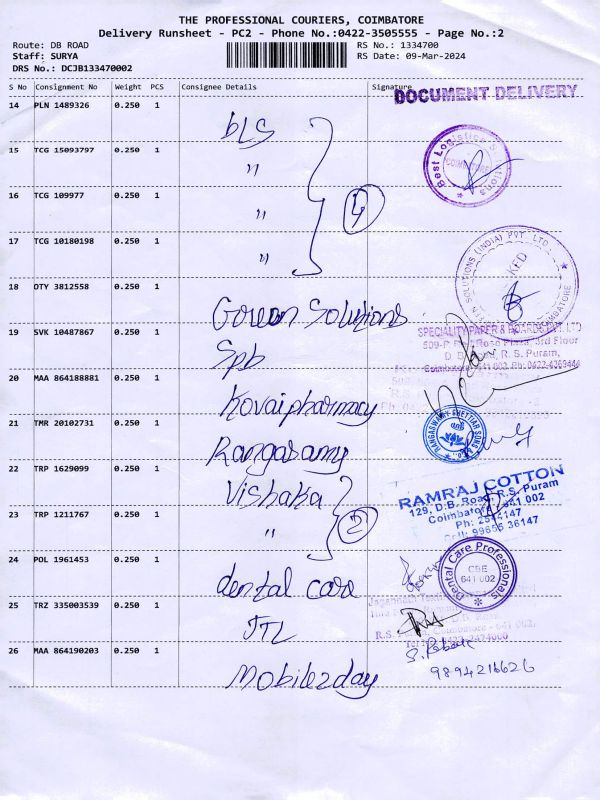 THE PROFESSIONAL COURIERS, COIMBATORE
Delivery Runsheet - PC2 - Phone No.:0422-3505555 - Page No.:2
Route: DB ROAD
RS No.: 1334700
Staff: SURYA
RS Date: 09-Mar-2024
DRS No.: DCJB133470002
S No Consignment No Weight PCS Consignee Details Signature
DOCUMENT DELIVERY
14 PLN 1489326 0.250 1
bLS
Best Logistics Solutions
COIMBATORE
15 TCG 15093797 0.250 1
"
16 TCG 109977 0.250 1
"
4
17 TCG 10180198 0.250 1
"
SOLUTIONS (INDIA) PVT. LTD
COIMBATORE
18 OTY 3812558 0.250 1
Green Solutions
SPECIALITY PAPER & BOARDS PVT. LTD
3rd Floor
R.S. Puram,
Coimbatore - 641 002. Ph: 0422-4369444
19 SVK 10487867 0.250 1
Spb
20 MAA 864188881 0.250 1
Kovai pharmacy
RANGASWAMY CHETTIAR SONS & CO.,
21 TMR 20102731 0.250 1
Rangasamy
22 TRP 1629099 0.250 1
Vishaka
RAMRAJ COTTON
129, D.B. Road, R.S. Puram
Coimbatore - 641 002
Ph: 2544147
Cell: 99655 36147
23 TRP 1211767 0.250 1
"
2
24 POL 1961453 0.250 1
dental care
Dental Care Professionals
CBE
641 002
25 TRZ 335003539 0.250 1
JTL
R.S. Puram, Coimbatore - 641 002,
26 MAA 864190203 0.250 1
Mobile2day
9894216626